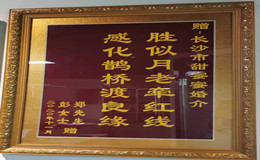 赠:长沙市甜蜜蜜婚介
胜似月老牵红线
感化鹊桥渡良缘
郑先生
彭女士 赠